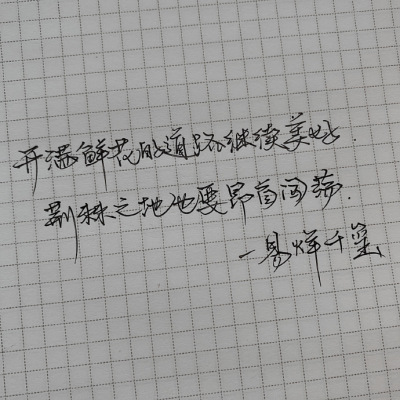 开满鲜花的道路继续美好.
荆棘之地也要昂首闯荡.
—易烊千玺